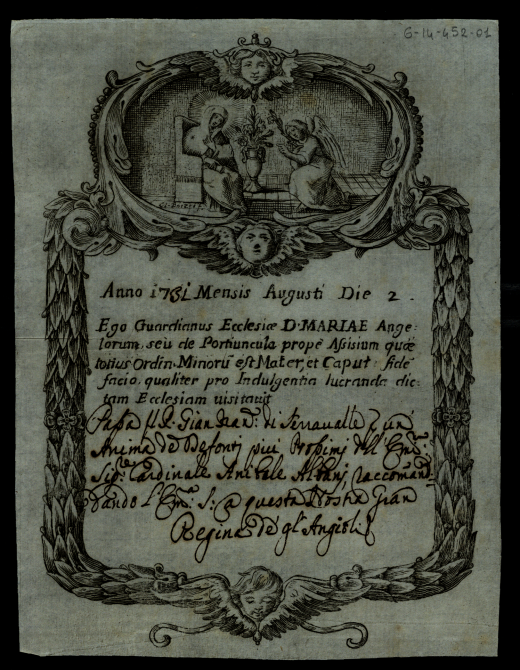 6-14-452-01
Anno 1751 Mensis Augusti Die 2.
Ego Guardianus Ecclesiæ D. MARIAE Ange=
lorum, seu de Portiuncula prope Assisium quæ
totius Ordin. Minorū est Mater, et Caput fidē
facio, qualiter pro Indulgentia lucranda dic=
tam Ecclesiam visitavit
di Serravalle
Anima de Defonti più Prossimi dell' Em.
Sig. Cardinale Anibale Albani, raccoman=
dando l'Em. S. a questa nostra Gran
Regina de gl' Angioli